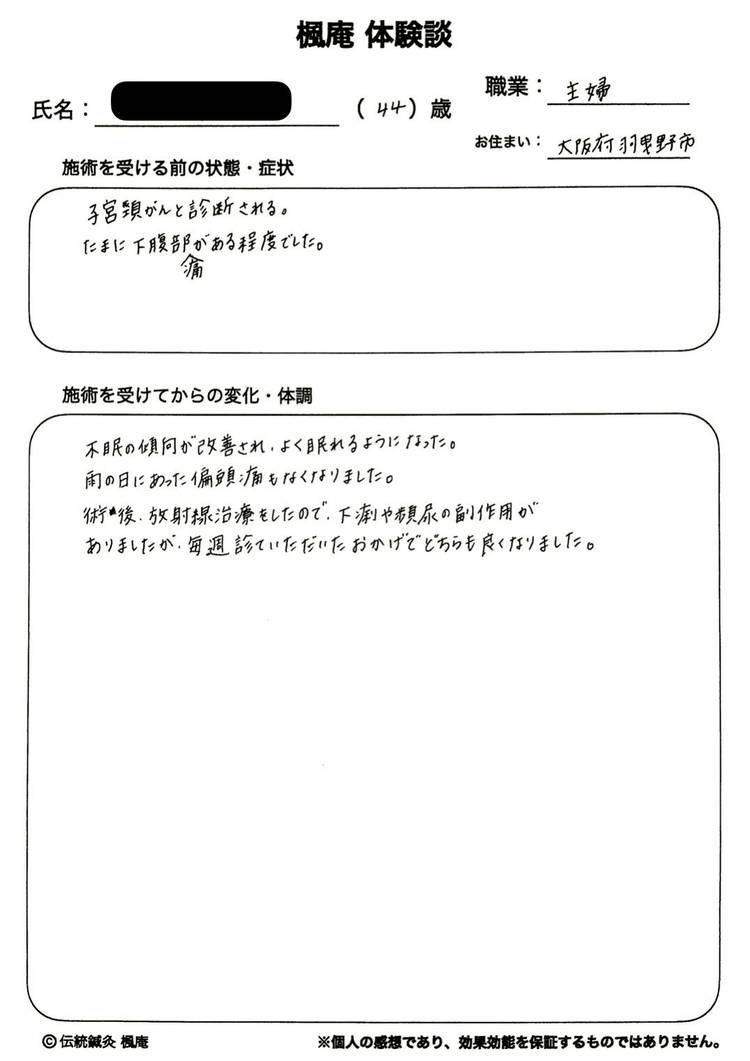 楓庵 体験談
職業： 主婦
氏名： （ 44 ）歳
お住まい： 大阪府羽曳野市
施術を受ける前の状態・症状
子宮頸がんと診断される。
たまに下腹部痛がある程度でした。
施術を受けてからの変化・体調
不眠の傾向が改善され、よく眠れるようになった。
雨の日にあった偏頭痛もなくなりました。
術後、放射線治療をしたので、下痢や頻尿の副作用が
ありましたが、毎週診ていただいたおかげでどちらも良くなりました。
©伝統鍼灸 楓庵
※個人の感想であり、効果効能を保証するものではありません。